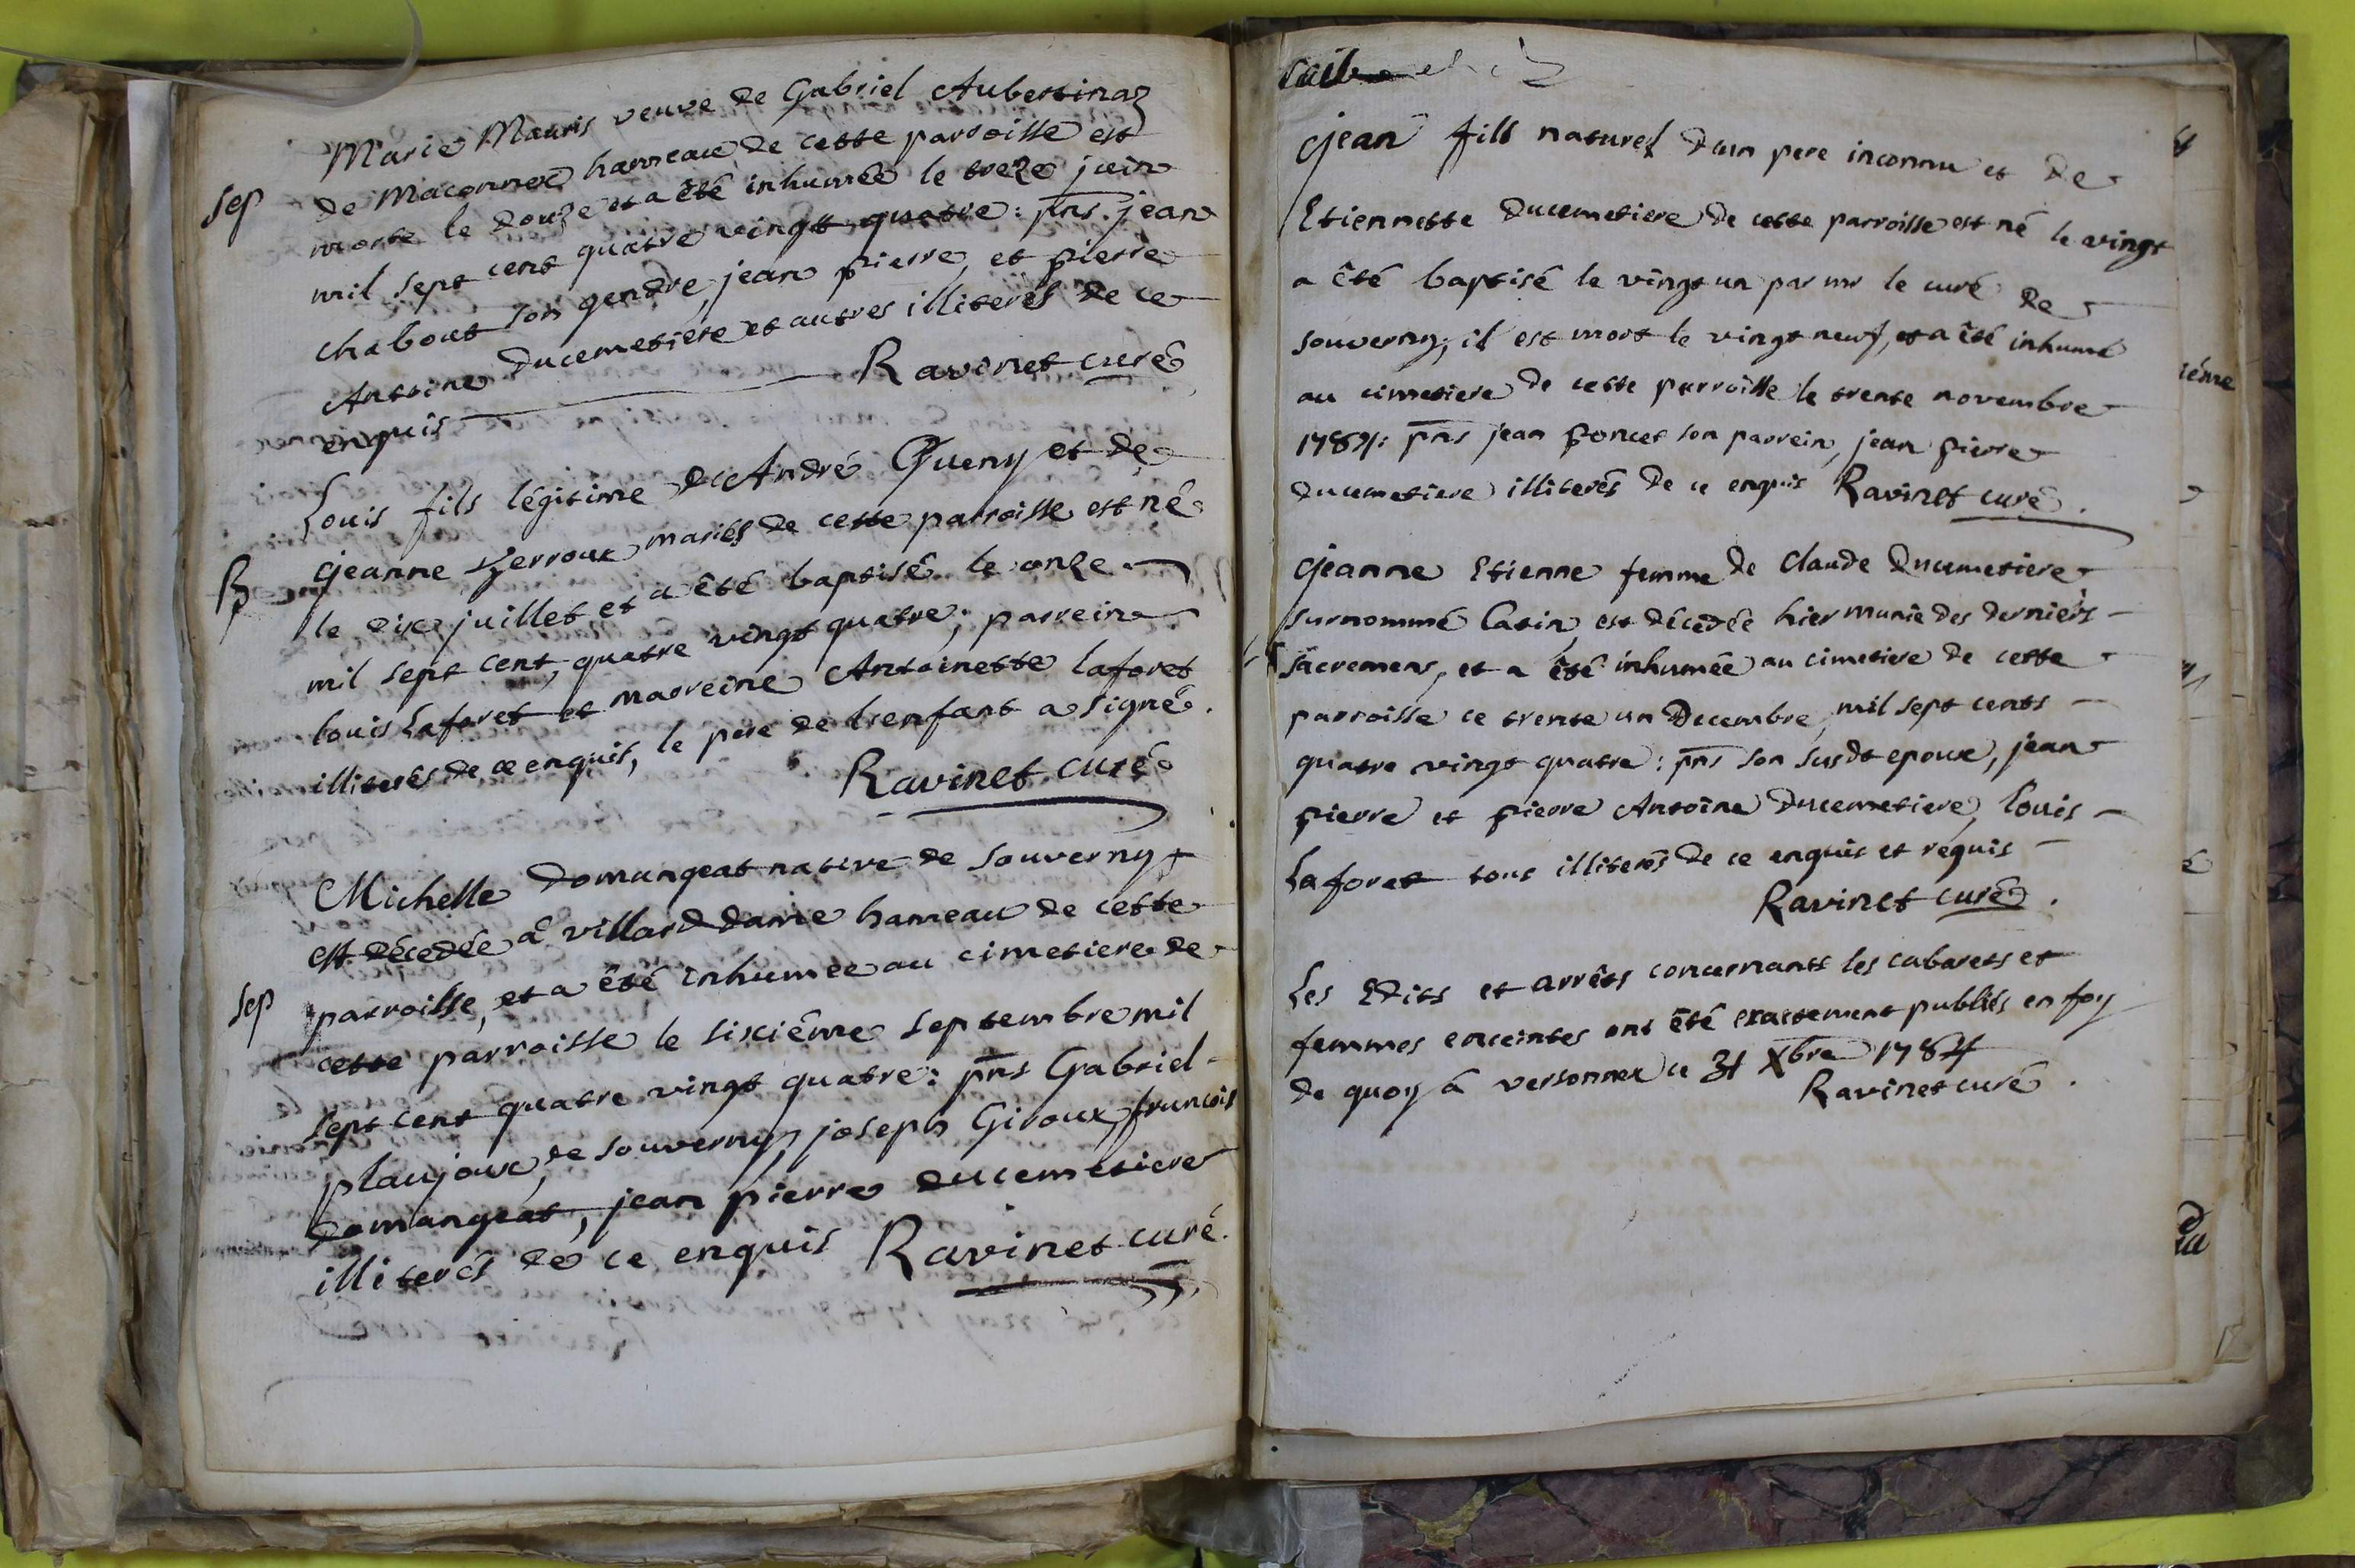 Marie Mauris veuve de Gabriel Aubertinaz
sep
de Maconnex hameau de cette parroisse est
morte le douze et a êté inhumée le treze juin
mil sept cent quatre vingt quatre: pns. jean
chabout son gendre, jean pierre, et pierre
Antoine Ducemetiere et autres illiterés de ce
enquis Ravinet curé
Louis fils légitime D'André Queny et de
B
jeanne Verroux mariés de cette parroisse est né
le dix juillet et a êté baptisé le onze
mil sept cent, quatre vingt quatre; parrein
louis Laforet et marreine Antoinette laforet
illiterés de ce enquis, le pere de l'enfant a signé.
Ravinet curé
Michelle Domangeat native de Souverny
est décedée a villard dame hameau de cette
sep
parroisse, et a êté inhumée au cimetiere de
cette parroisse le sixiême septembre mil
sept cent quatre vingt quatre: pns Gabriel
plaujoux, de Souverny, joseph Giroux, francois
Domangeat, jean pierre Ducemetiere
illiterés de ce enquis Ravinet curé.
jean fils naturel d'un pere inconnu et de
Etiennette Ducemetiere de cette parroisse est né le vingt
a êté baptisé le vingt un par mr le curé de
souverny, il est mort le vingt neuf, et a êté inhumé
au cimetiere de cette parroisse le trente novembre
1784: pns jean poncet son parrein, jean pierre
ducemetiere illiterés de ce enquis Ravinet curé.
jeanne Etienne femme de Claude Ducemetiere
surnommé Catin, est décedée hier munie des derniers
sacremens, et a êté inhumée au cimetiere de cette
parroisse ce trente un Decembre, mil sept cents
quatre vingt quatre: pns son susdt epoux, jean
pierre et pierre Antoine Ducemetiere, louis
Laforet tous illiterés de ce enquis et requis
Ravinet curé.
Les Edits et arrêts concernants les cabarets et
femmes enceintes ont êté exactement publiés en foy
de quoy â versonnex ce 31 Xbre 1784
Ravinet curé.